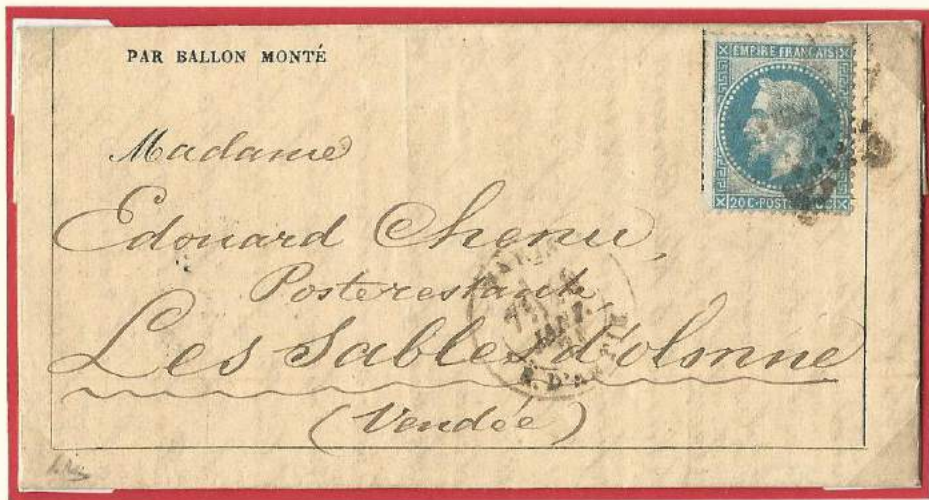 PAR BALLON MONTÉ
EMPIRE FRANÇAIS
20 C·POST
Madame
Edouard Chenu,
Poste restante
Les Sables d'olonne
(Vendée)
JANV.